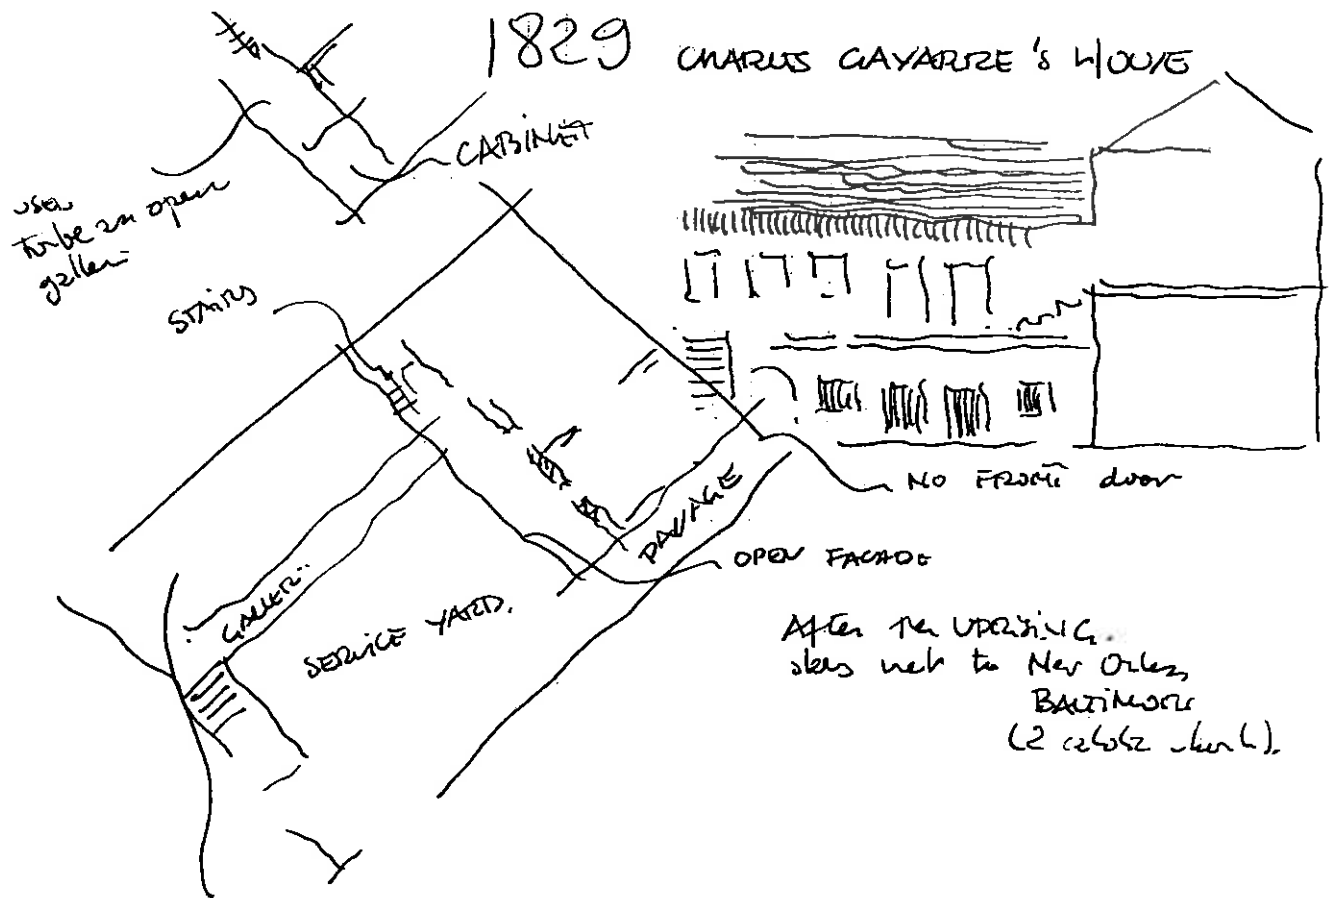 1829 CHARLES GAYARRE'S HOUSE
CABINET
USED
to be an open
gallery
STAIRS
NO FRONT door
PASSAGE
OPEN FACADE
GALLERY
SERVICE YARD.
After the UPRISING.
went to New Orleans
BALTIMORE
(2